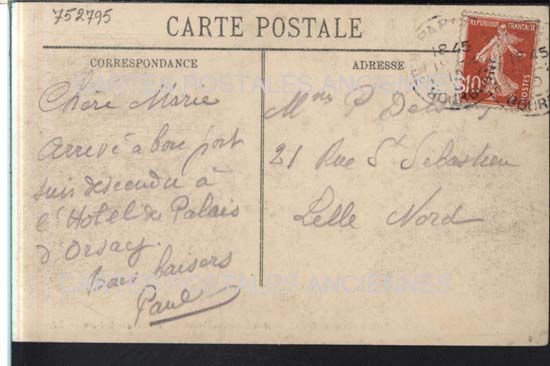 752795
CARTE POSTALE
CORRESPONDANCE
ADRESSE
REPUBLIQUE FRANCAISE
10
POSTES
18 45
Chere Marie
Arrivé a bon port
suis descendu à
l'Hotel du Palais
d'Orsay.
bons baisers
Paul
P
21 Rue St Sebastien
Lille Nord
CARTES POSTALES ANCIENNES
CARTES POSTALES ANCIENNES